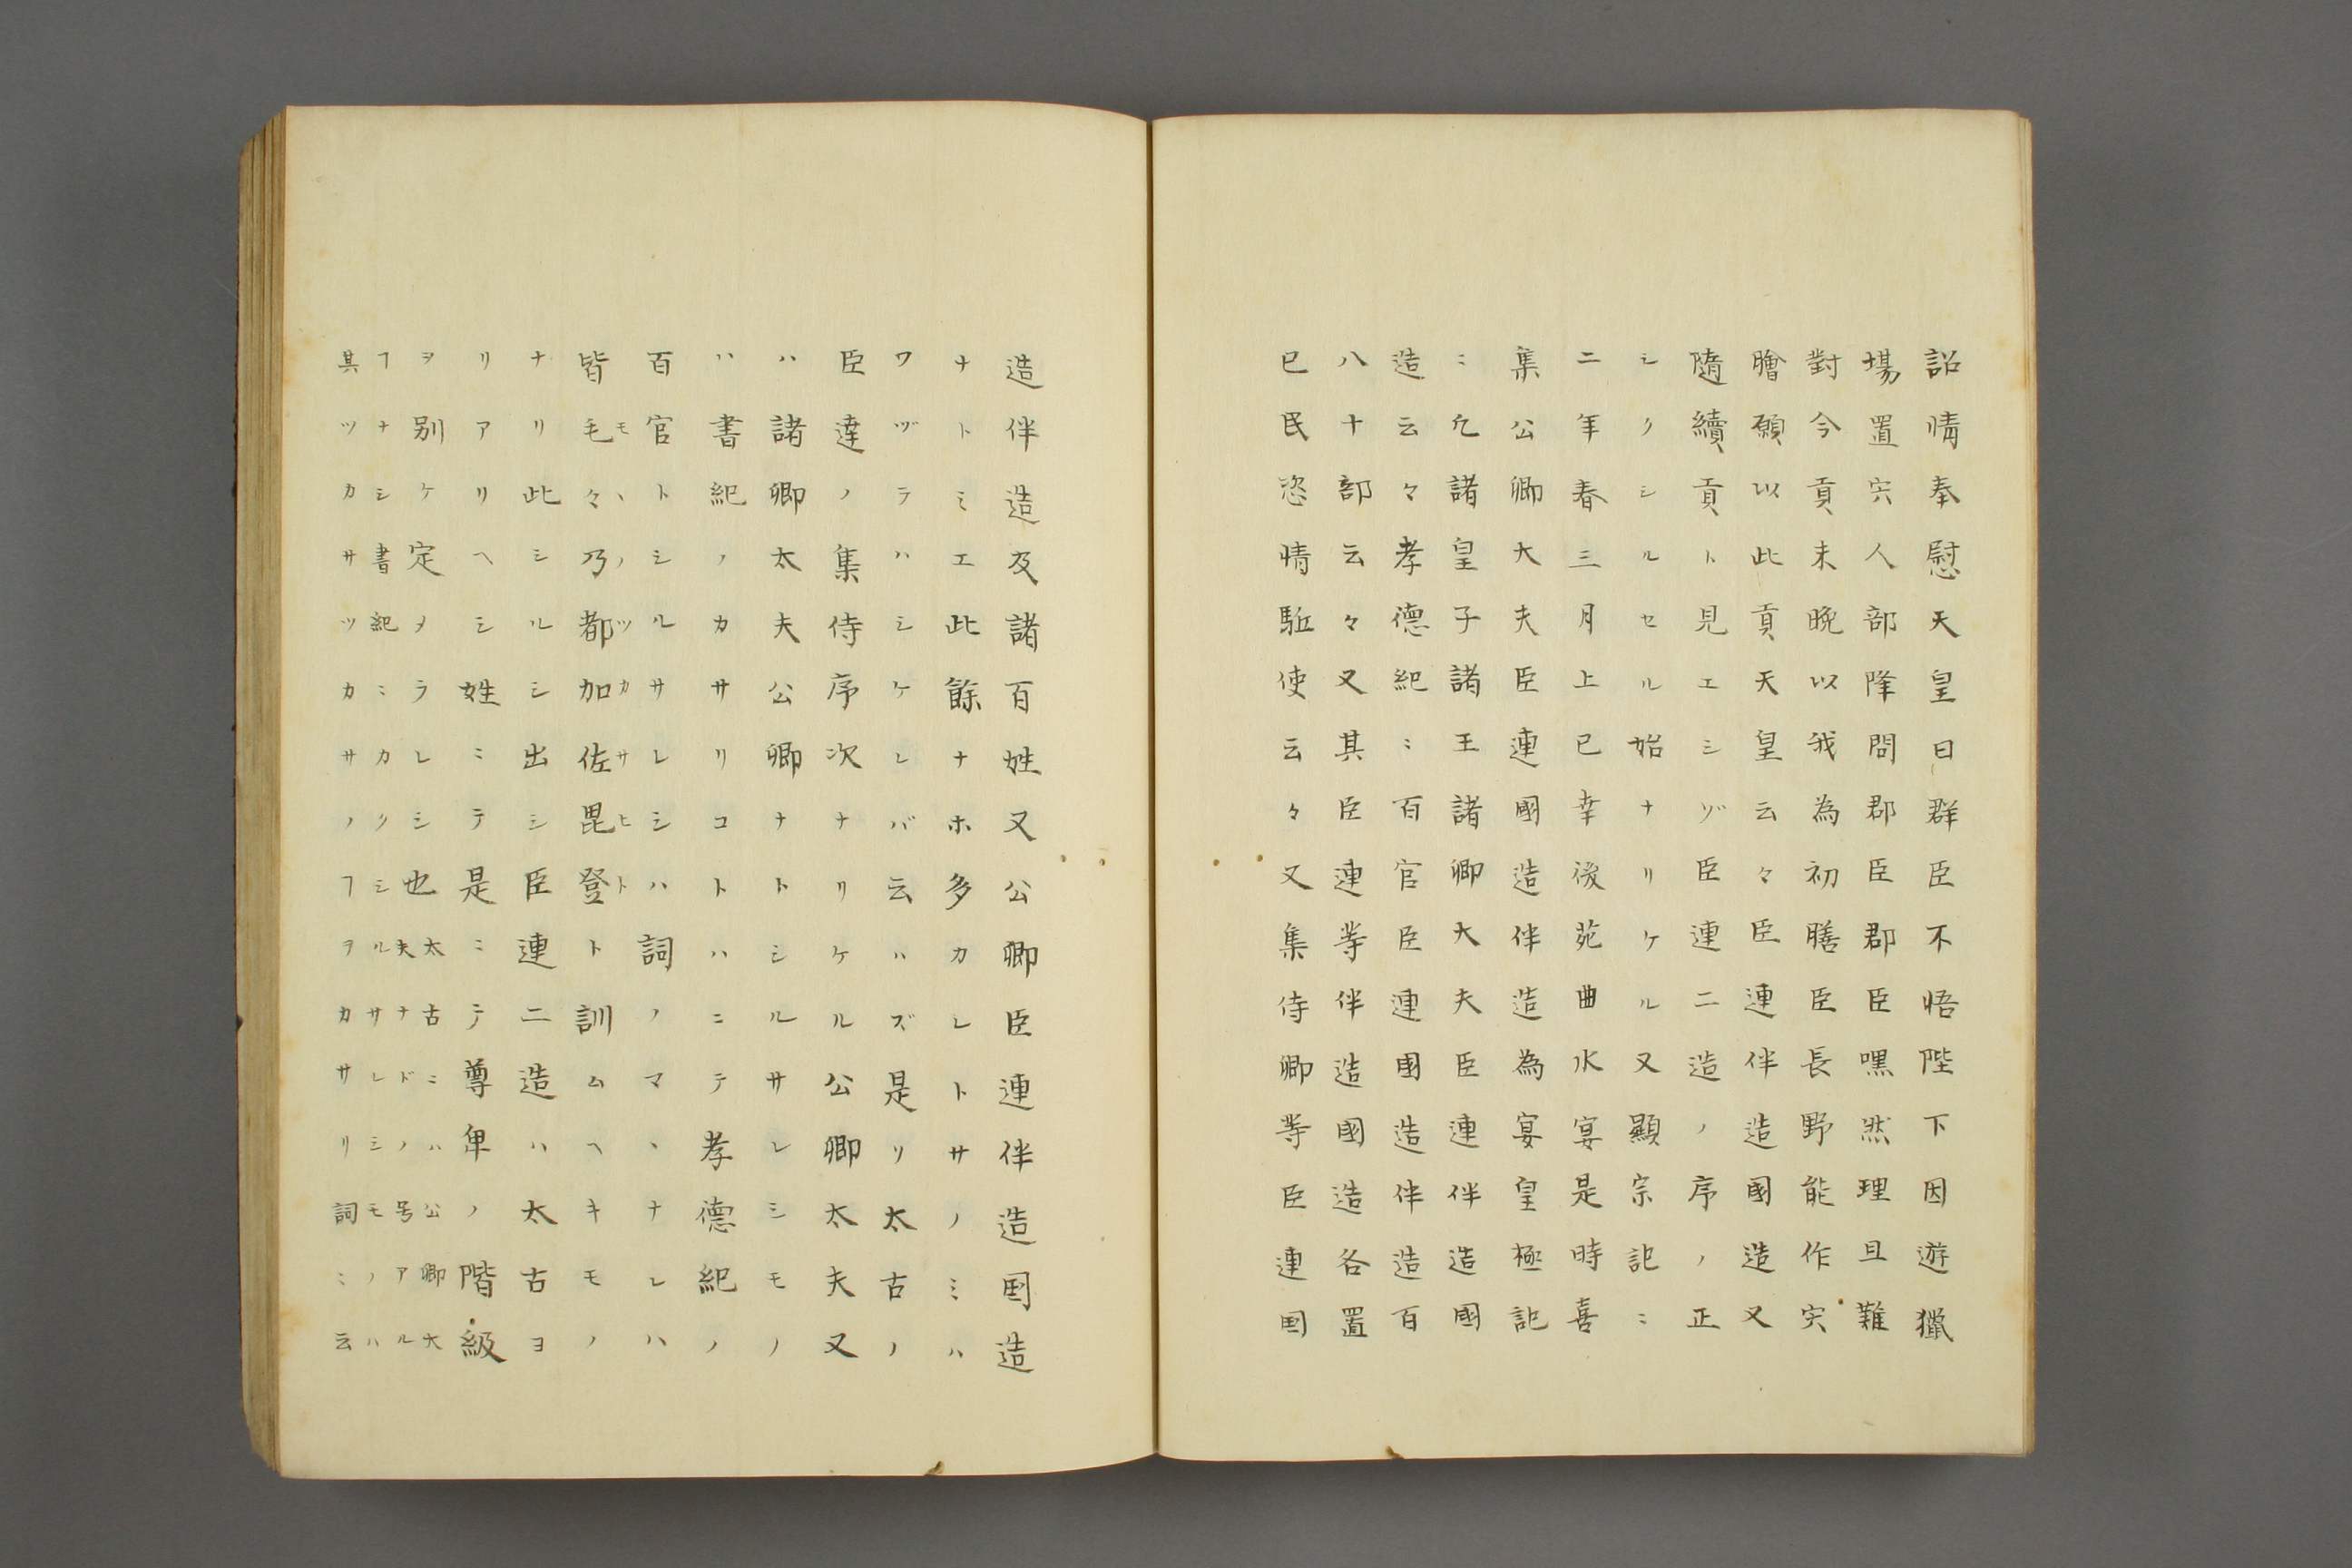 詔情奉慰天皇曰群臣不悟陛下因遊獵
場置宍人部降問郡臣郡臣嘿然理且難
對今貢未晩以我為初膳臣長野能作宍
膾願以此貢天皇云々臣連伴造國造又
隨續貢ト見エシゾ臣連二造ノ序ノ正
シクシルセル始ナリケル又顯宗記ニ
二年春三月上巳幸後苑曲水宴是時喜
集公卿大夫臣連國造伴造為宴皇極記
ニ凢諸皇子諸王諸卿大夫臣連伴造國
造云々孝德紀ニ百官臣連國造伴造百
八十部云々又其臣連等伴造國造各置
已民恣情駈使云々又集侍卿等臣連国
造伴造及諸百姓又公卿臣連伴造国造
ナトミエ此餘ナホ多カレトサノミハ
ワヅラハシケレバ云ハズ是リ太古ノ
臣達ノ集侍序次ナリケル公卿太夫又
ハ諸卿太夫公卿ナトシルサレシモノ
ハ書紀ノカサリコトハニテ孝德紀ノ
百官トシルサレシハ詞ノマヽナレハ
モヽノツカサヒト
皆毛々乃都加佐毘登ト訓ムヘキモノ
ナリ此シルシ出シ臣連二造ハ太古ヨ
リアリヘシ姓ニテ是ニテ尊卑ノ階級
ヲ別ケ定メラレシ也
太古ニハ公卿大
夫ナドノ号アル
ヿナシ書紀ニカクシルサレシモノハ
其ツカサツカサノヿヲカサリ詞ニ云